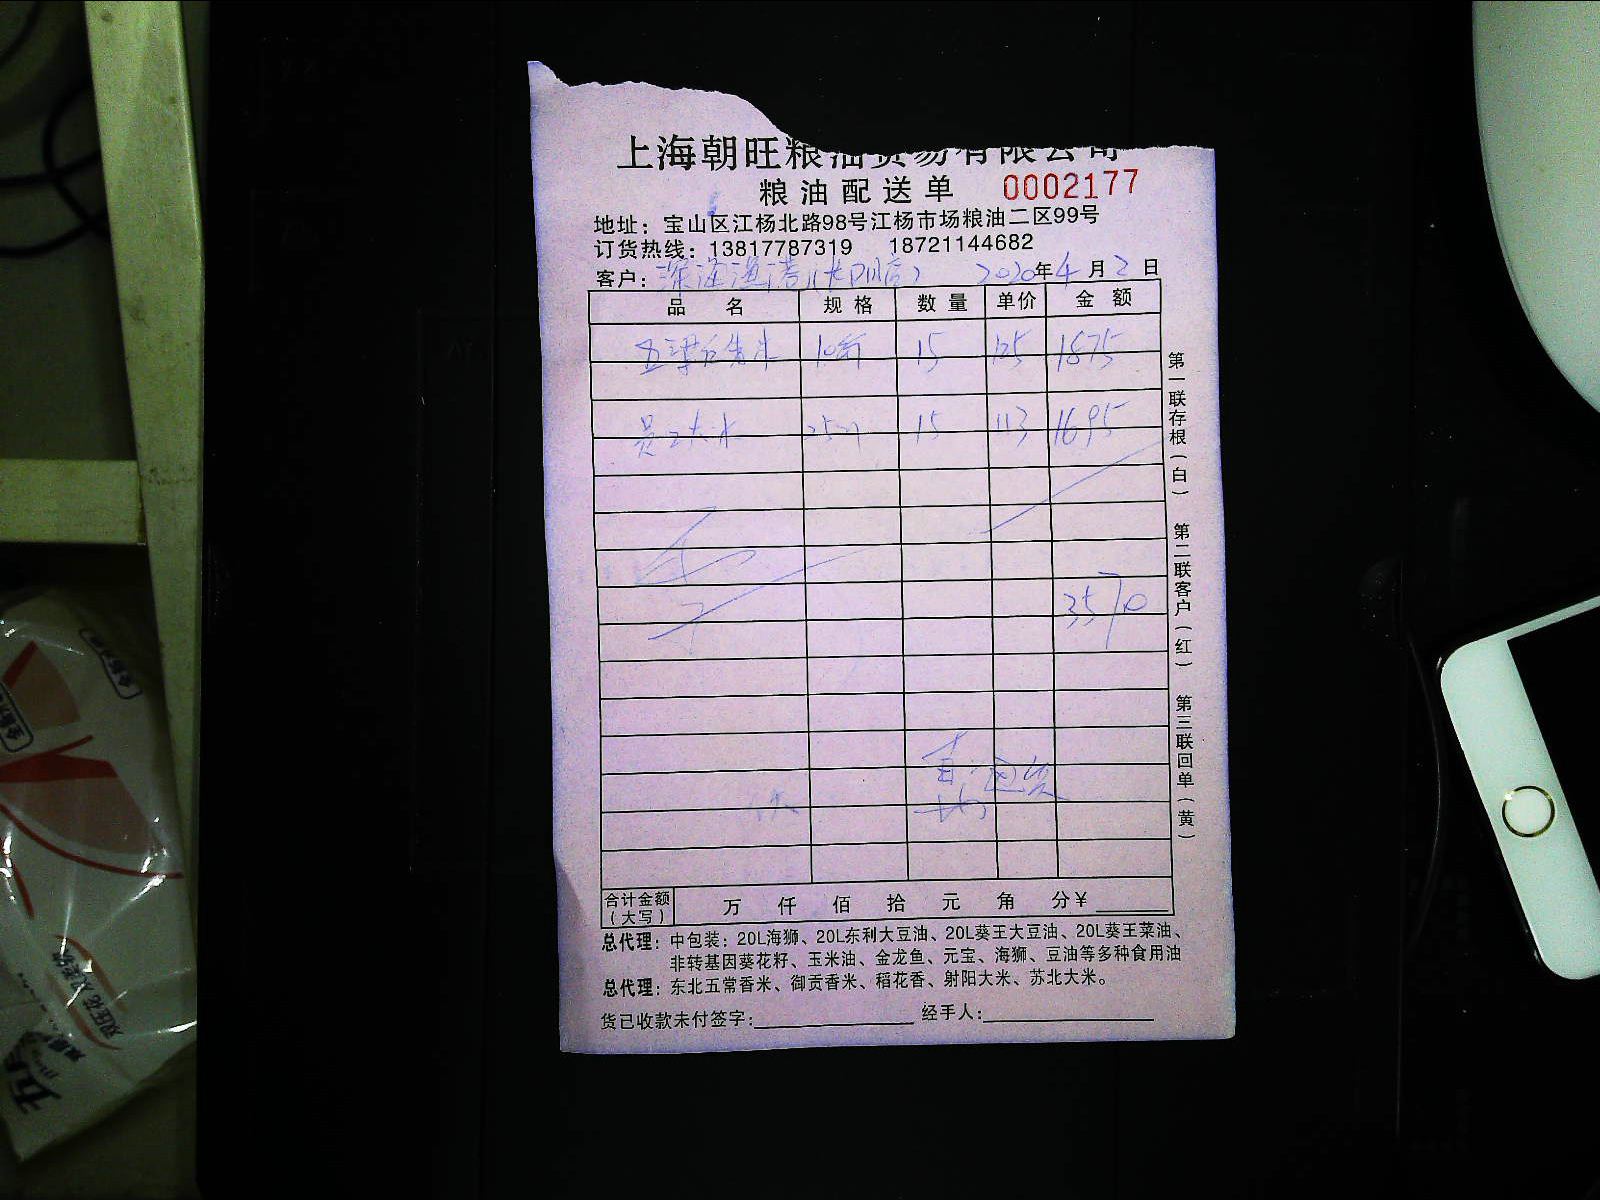 上海朝旺粮油贸易有限公司
粮油配送单 0002177
地址：宝山区江杨北路98号江杨市场粮油二区99号
订货热线：13817787319 18721144682
客户： 2020年4月2日
品名 规格 数量 单价 金额
15 125 1875
员工大米 25 15 113 1695
3570
合计金额（大写） 万 仟 佰 拾 元 角 分￥
总代理：中包装：20L海狮、20L东利大豆油、20L葵王大豆油、20L葵王菜油、
非转基因葵花籽、玉米油、金龙鱼、元宝、海狮、豆油等多种食用油
总代理：东北五常香米、御贡香米、稻花香、射阳大米、苏北大米。
货已收款未付签字： 经手人：
第一联存根（白） 第二联客户（红） 第三联回单（黄）